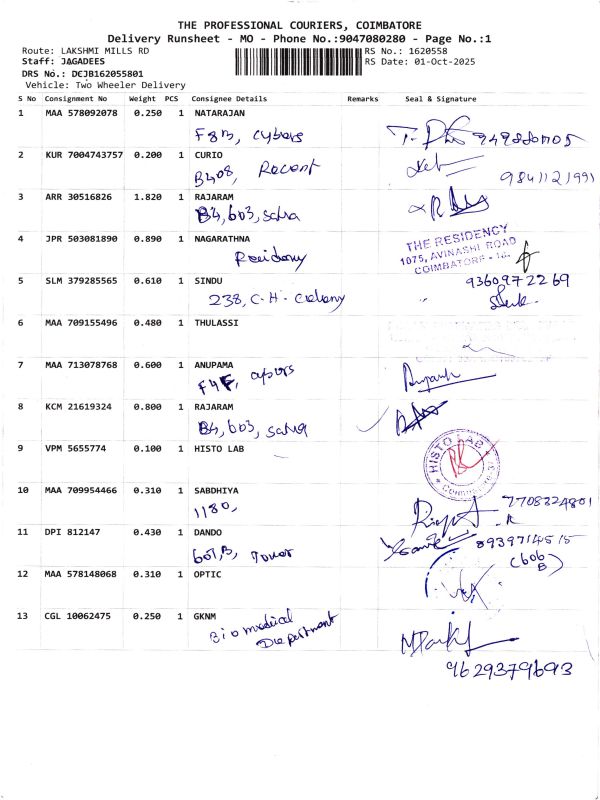 THE PROFESSIONAL COURIERS, COIMBATORE
Delivery Runsheet - MO - Phone No.:9047080280 - Page No.:1
Route: LAKSHMI MILLS RD RS No.: 1620558
Staff: JAGADEES RS Date: 01-Oct-2025
DRS No.: DCJB162055801
Vehicle: Two Wheeler Delivery
S No Consignment No Weight PCS Consignee Details Remarks Seal & Signature
1 MAA 578092078 0.250 1 NATARAJAN
F8B, cybers
2 KUR 7004743757 0.200 1 CURIO
B408, 9841121991
3 ARR 30516826 1.820 1 RAJARAM
B4, 603, Saha
4 JPR 503081890 0.890 1 NAGARATHNA
THE RESIDENCY
1075, AVINASHI ROAD
COIMBATORE - 18.
5 SLM 379285565 0.610 1 SINDU 9360972269
238, C.H. Colony
6 MAA 709155496 0.480 1 THULASSI
7 MAA 713078768 0.600 1 ANUPAMA
F4F,
8 KCM 21619324 0.800 1 RAJARAM
B4, 603, Saha
9 VPM 5655774 0.100 1 HISTO LAB
HISTO LAB
10 MAA 709954466 0.310 1 SABDHIYA
1180, 7708324801
11 DPI 812147 0.430 1 DANDO
607,B, Tower 8939714515
(606
B)
12 MAA 578148068 0.310 1 OPTIC
13 CGL 10062475 0.250 1 GKNM
Biomedical
Department
9629379693